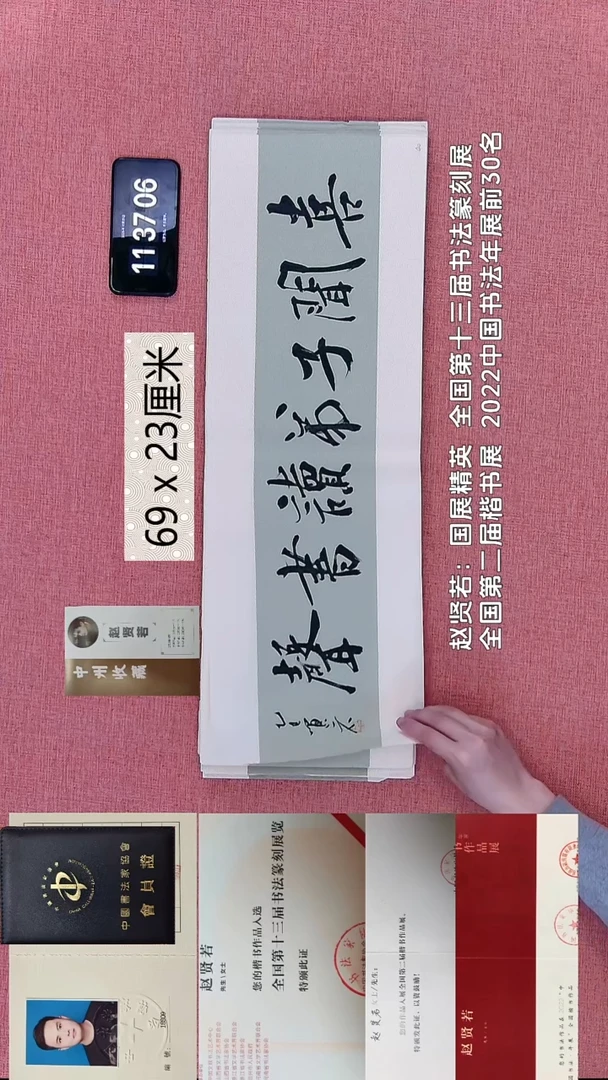 赵贤若：国展精英 全国第十三届书法篆刻展
全国第二届楷书展 2022中国书法年展前30名
喜聞子弟讀書聲
113706
69 x 23厘米
赵贤若
中州收藏
中國書法家協會
會員證
赵贤若
先生/女士
您的楷书作品入选
全国第十三届书法篆刻展览
特颁此证
女士/先生:
您的作品入展全国第二届楷书作品展,
特颁发此证，以资鼓励!
作品展
赵贤若